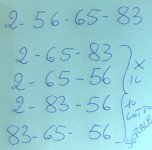 2-56-65-83
2-65-83
2-65-56
2-83-56
83-65-56
X
IL
10
LOTTO
SERALE